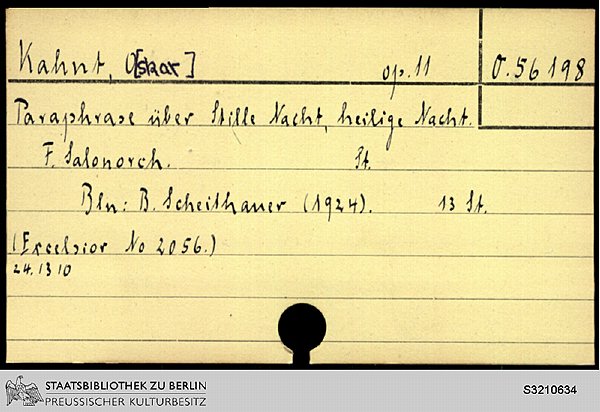 Kahnt, O[skar] op. 11 O. 56 198
Paraphrase über Stille Nacht, heilige Nacht.
F. Salonorch. St.
Bln: B. Scheithauer (1924). 13 St.
(Excelsior No 2056.)
24.1310
STAATSBIBLIOTHEK ZU BERLIN
PREUSSISCHER KULTURBESITZ
S3210634